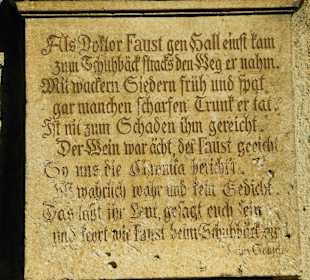 Als Doktor Faust gen Hall einst kam
zum Schuhbäck stracks den Weg er nahm.
Mit wackern Siedern früh und spat
gar manchen scharfen Trunk er tat.
Ist nit zum Schaden ihm gereicht.
Der Wein war ächt, der Faust geeicht.
So uns die Chronica bericht.
Ist wahrlich wahr und kein Gedicht.
Das laßt ihr Leut, gesagt euch sein
und kehrt wie Faust beim Schuhbäck ein